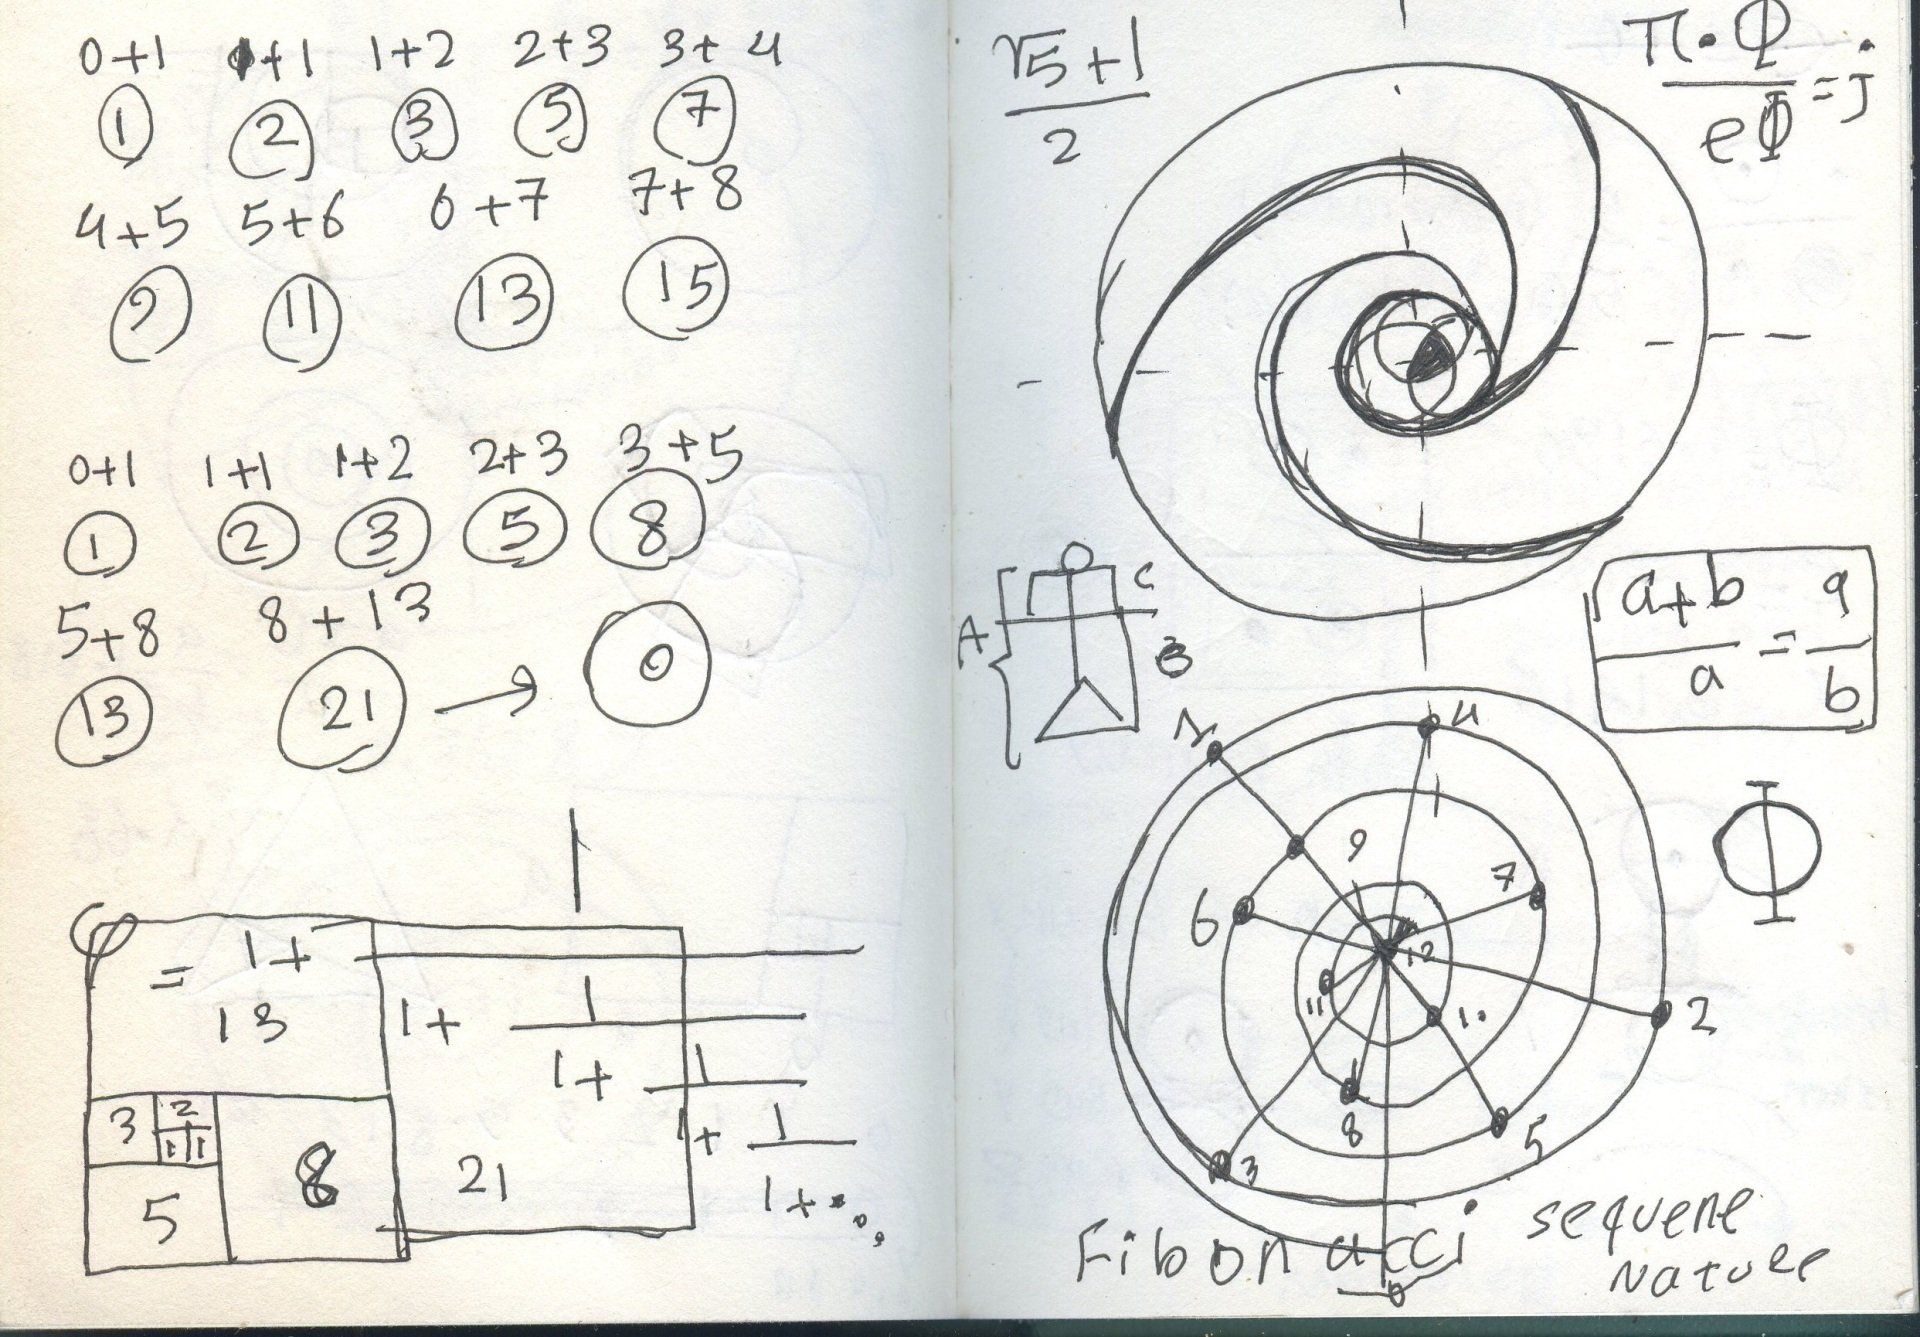 0+1 1+1 1+2 2+3 3+4
1 2 3 5 7
4+5 5+6 6+7 7+8
9 11 13 15
0+1 1+1 1+2 2+3 3+5
1 2 3 5 8
5+8 8+13
13 21 → 0
1
= 1+
13
1+ 1
1+ 1
1+ 1
1+...
3 2
1 1
5 8 21
√5+1
2
π·Φ
eΦ
=j
A C
B
a+b = a
a b
Φ
1 4
9 7
6
12
11 10 2
8 5
3
Fibonacci
sequene
Nature